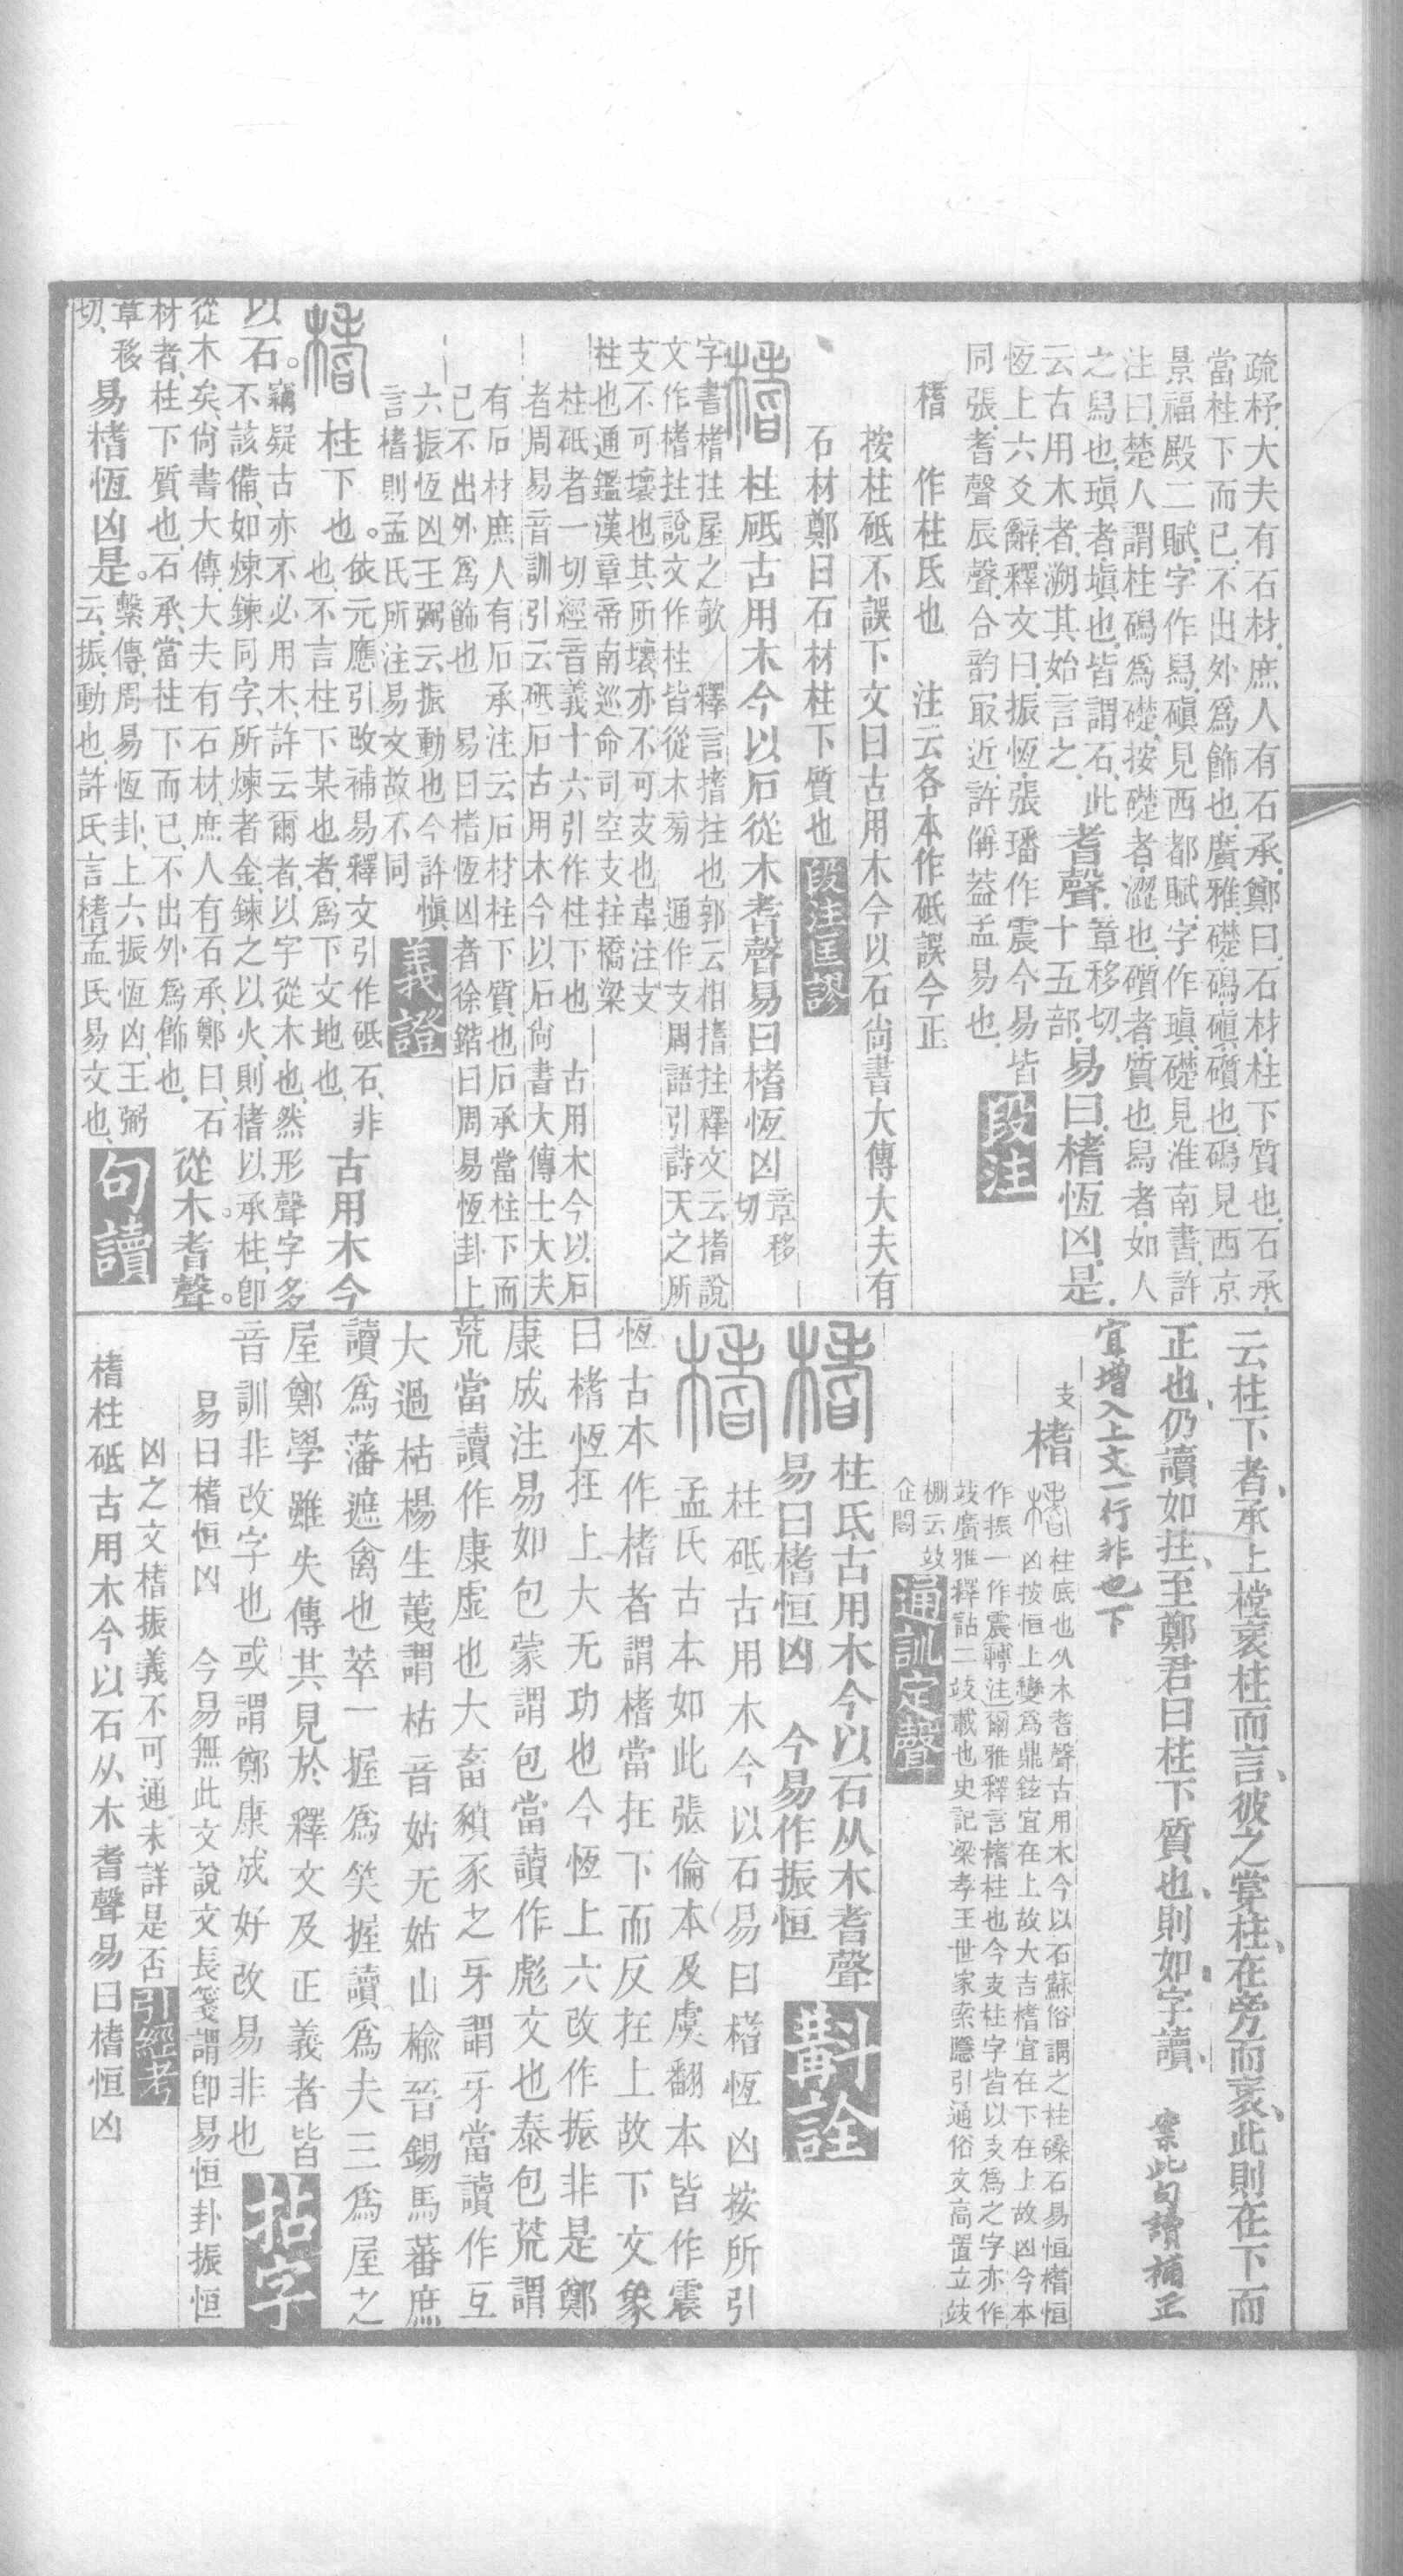 疏杼大夫有石材庶人有石承鄭曰石材柱下質也石承
當柱下而已不出外爲飾也廣雅礎磶磌礩也磶見西京
景福殿二賦字作舄磌見西都賦字作瑱礎見淮南書許
注曰楚人謂柱磶爲礎按礎者澀也礩者質也舄者如人
之舄也瑱者塡也皆謂石此耆聲章移切易曰榰恆凶是
云古用木者溯其始言之十五部
恆上六爻辭釋文曰振恆張璠作震今易皆
同張耆聲辰聲合韵㝡近許偁葢孟易也段注
榰 作柱氐也 注云各本作砥誤今正
按柱砥不誤下文曰古用木今以石尙書大傳大夫有
石材鄭曰石材柱下質也段注匡謬
榰 柱砥古用木今以石從木耆聲易曰榰恆凶章移切
字書榰拄屋之欹 釋言搘拄也郭云相搘拄釋文云搘說
文作榰拄說文作柱皆從木㫄 通作支周語引詩天之所
支不可壞也其所壞亦不可支也韋注支
柱也通鑑漢章帝南巡命司空支拄橋梁
柱砥者一切經音義十六引作柱下也 古用木今以石
者周易音訓引云砥石古用木今以石尙書大傳士大夫
有石材庶人有石承注云石材柱下質也石承當柱下而
已不出外爲飾也 易曰榰恆凶者徐鍇曰周易恆卦上
六振恆凶王弼云振動也今許愼
言榰則孟氏所注易文故不同義證
榰 柱下也依元應引改補易釋文引作砥石非古用木今
也不言柱下某也者爲下文地也
以石竊疑古亦不必用木許云爾者以字從木也然形聲字多
不該備如煉鍊同字所煉者金鍊之以火則榰以承柱卽
從木矣尙書大傳大夫有石材庶人有石承鄭曰石
材者柱下質也石承當柱下而已不出外爲飾也從木耆聲
章移切易榰恆凶是繫傳周易恆卦上六振恆凶王弼
云振動也許氏言榰孟氏易文也句讀
云柱下者承上樘衺柱而言彼之牚柱在旁而衺此則在下而
正也仍讀如拄至鄭君曰柱下質也則如字讀 案此句讀補正
宜增入上文一行非也下
支
榰 柱底也从木耆聲古用木今以石蘇俗謂之柱磉石易恒榰恒
凶按恒上變爲鼎鉉宜在上故大吉榰宜在下在上故凶今本
作振一作震轉注爾雅釋言榰柱也今支柱字皆以支爲之字亦作
㩻廣雅釋詁二㩻載也史記梁孝王世家索隱引通俗文高置立㩻
棚云㩻
企閣通訓定聲
榰 柱氐古用木今以石从木耆聲
易曰榰恒凶 今易作振恒斠詮
榰 柱砥古用木今以石易曰榰恆凶按所引
孟氏古本如此張倫本及虞翻本皆作震
恆古本作榰者謂榰當在下而反在上故下文象
曰榰恆在上大无功也今恆上六改作振非是鄭
康成注易如包蒙謂包當讀作彪文也泰包荒謂
荒當讀作康虛也大畜豶豕之牙謂牙當讀作互
大過枯楊生荑謂枯音姑无姑山榆晉錫馬蕃庶
讀爲藩遮禽也萃一握爲笑握讀爲夫三爲屋之
屋鄭學雖失傳其見於釋文及正義者皆
音訓非改字也或謂鄭康成好改易非也拈字
易曰榰恒凶 今易無此文說文長箋謂卽易恒卦振恒
凶之文榰振義不可通未詳是否引經考
榰柱砥古用木今以石从木耆聲易曰榰恒凶